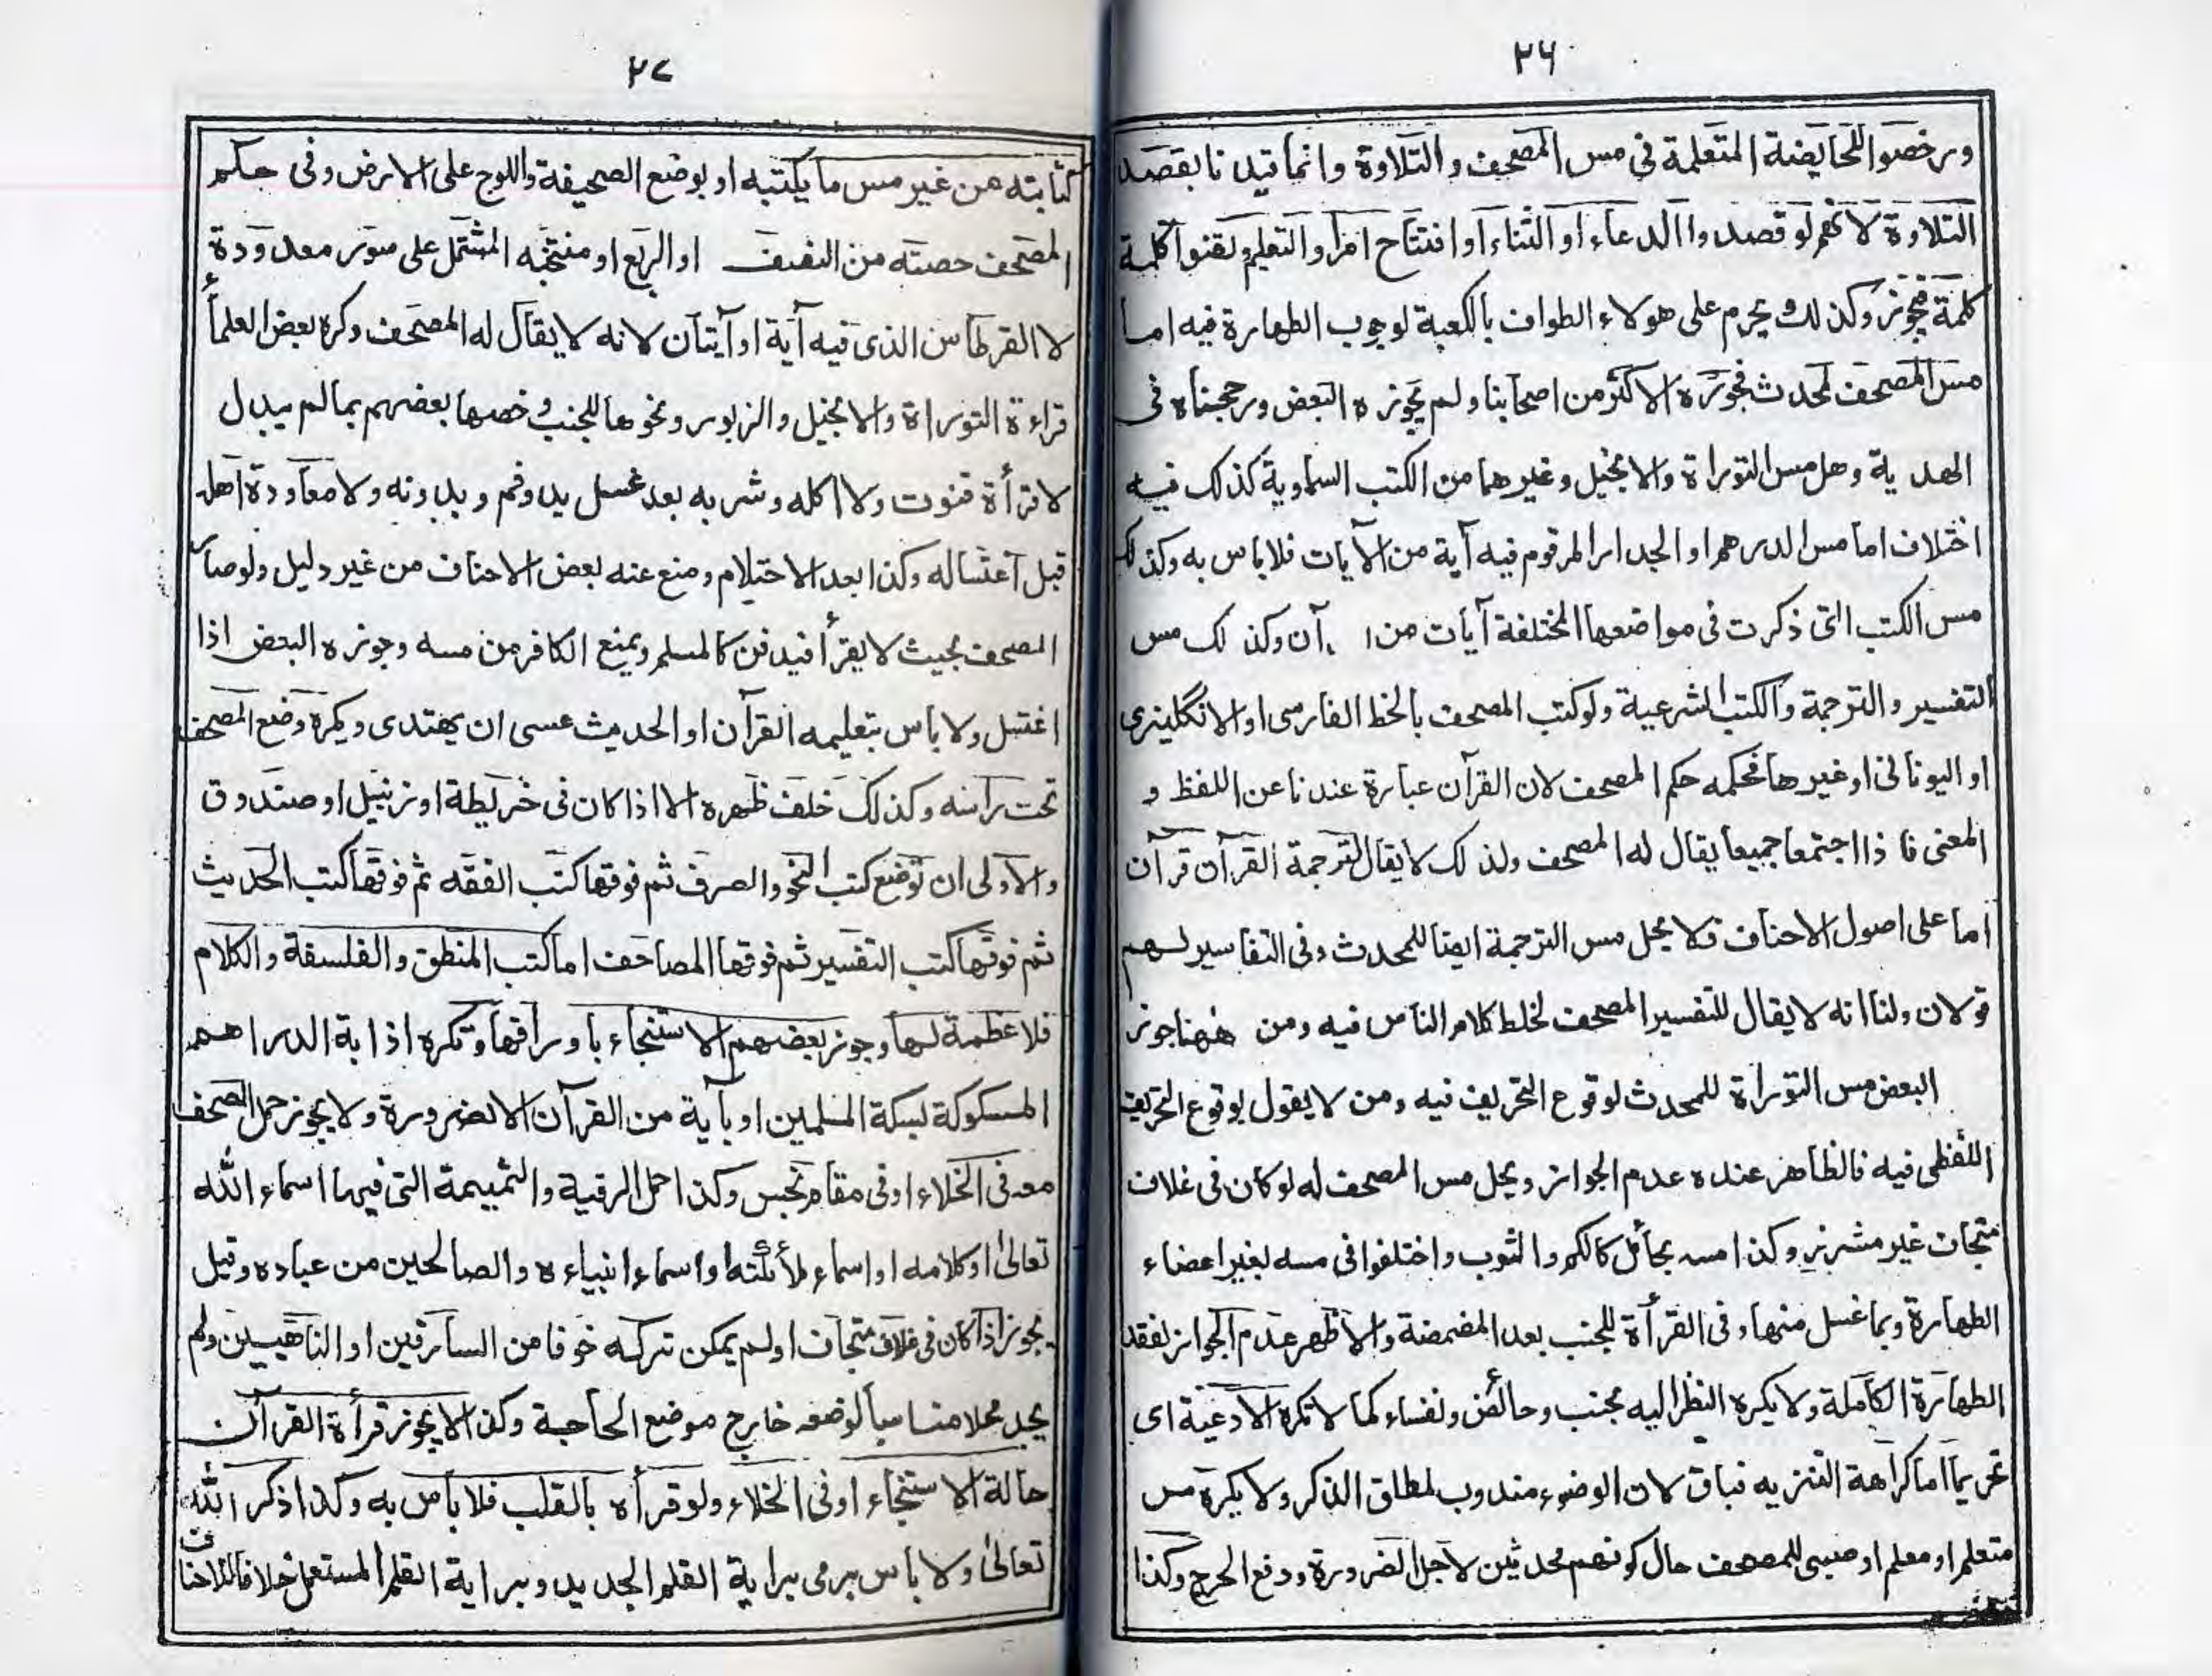 ٢٦
ورخصوا للحايضة المتعلمة في مس المصحف والتلاوة وانما قيدنا بقصد
التلاوة لانهم لو قصدوا الدعاء او الثناء او افتتاح امر او التعليم ولقنوا كلمة
كلمة فيجوز وكذلك يحرم على هولاء الطواف بالكعبة لوجوب الطهارة فيه اما
مس المصحف لمحدث فجوزه الاكثر من اصحابنا ولم يجوزه البعض ورجحناه في
الهدية وهل مس التوراة والانجيل وغيرهما من الكتب السماوية كذلك فيه
اختلاف اما مس الدرهم او الجدار المرقوم فيه آية من الآيات فلا باس به وكذلك
مس الكتب التى ذكرت في مواضعها المختلفة آيات من آن وكذلك مس
التفسير والترجمة والكتب الشرعية ولو كتب المصحف بالخط الفارسى او الانگليزى
او اليونانى او غيرها فحكمه حكم المصحف لان القرآن عبارة عندنا عن اللفظ و
المعنى فاذا اجتمعا جميعا يقال له المصحف ولذلك لا يقال لترجمة القرآن قرآن
اما على اصول الاحناف فلا يحل مس الترجمة ايضا للمحدث وفى التفاسير لهم
قولان ولنا انه لا يقال للتفسير المصحف لخلط كلام الناس فيه ومن ههنا جوز
البعض مس التوراة للمحدث لوقوع التحريف فيه ومن لا يقول بوقوع التحريف
اللفظى فيه فالظاهر عنده عدم الجواز ويحل مس المصحف له لو كان في غلاف
متجاف غير مشرز وكذا مسه بحائل كالكم والثوب واختلفوا في مسه بغير اعضاء
الطهارة وبما غسل منها وفى القرأة للجنب بعد المضمضة والاظهر عدم الجواز لفقد
الطهارة الكاملة ولا يكره النظر اليه لجنب وحائض ونفساء كما لا تكره الادعية اى
تحريما اما كراهة التنزيه فباق لان الوضوء مندوب لمطلق الذكر ولا يكره مس
متعلم او معلم او صبى للمصحف حال كونهم محدثين لاجل الضرورة ودفع الحرج وكذا
٢٧
كتابته من غير مس ما يكتبه او بوضع الصحيفة واللوح على الارض وفى حكم
المصحف حصته من النصف او الربع او منتخبه المشتمل على سور معدودة
لا القرطاس الذى فيه آية او آيتان لانه لا يقال له المصحف وكره بعض العلمأ
قراءة التوراة والانجيل والزبور ونحوها للجنب وخصها بعضهم بما لم يبدل
لا قرأة قنوت ولا اكله وشربه بعد غسل يد وفم وبدونه ولا معاودة اهله
قبل اغتساله وكذا بعد الاحتيلام ومنع عنه بعض الاحناف من غير دليل ولو صار
المصحف بحيث لا يقرأ فيدفن كالمسلم ويمنع الكافر من مسه وجوزه البعض اذا
اغتسل ولا باس بتعليمه القرآن او الحديث عسى ان يهتدى ويكره وضع المصحف
تحت رأسه وكذلك خلف ظهره الا اذا كان في خريطة او زنبيل او صندوق
والاولى ان توضع كتب النحو والصرف ثم فوقها كتب الفقه ثم فوقها كتب الحديث
ثم فوقها كتب التفسير ثم فوقها المصاحف اما كتب المنطق والفلسفة والكلام
فلا عظمة لها وجوز بعضهم الاستنجاء باوراقها وتكره اذابة الدراهم
المسكوكة بسكة المسلمين او بآية من القرآن الا لضرورة ولا يجوز حمل المصحف
معه في الخلاء او في مقام نجس وكذا حمل الرقية والتميمة التى فيها اسماء الله
تعالىٰ او كلامه او اسماء ملأئكته او اسماء انبياءه والصالحين من عباده وقيل
يجوز اذا كان في غلاف متجاف او لم يمكن تركه خوفا من السارقين او الناهبين ولم
يجد محلا مناسبا لوضعه خارج موضع الحاجة وكذا لا يجوز قرأة القرآن
حالة الاستنجاء او في الخلاء ولو قرأه بالقلب فلا باس به وكذا ذكر الله
تعالىٰ ولا باس برمى براية القلم الجديد وبراية القلم المستعمل خلافا للاحناف